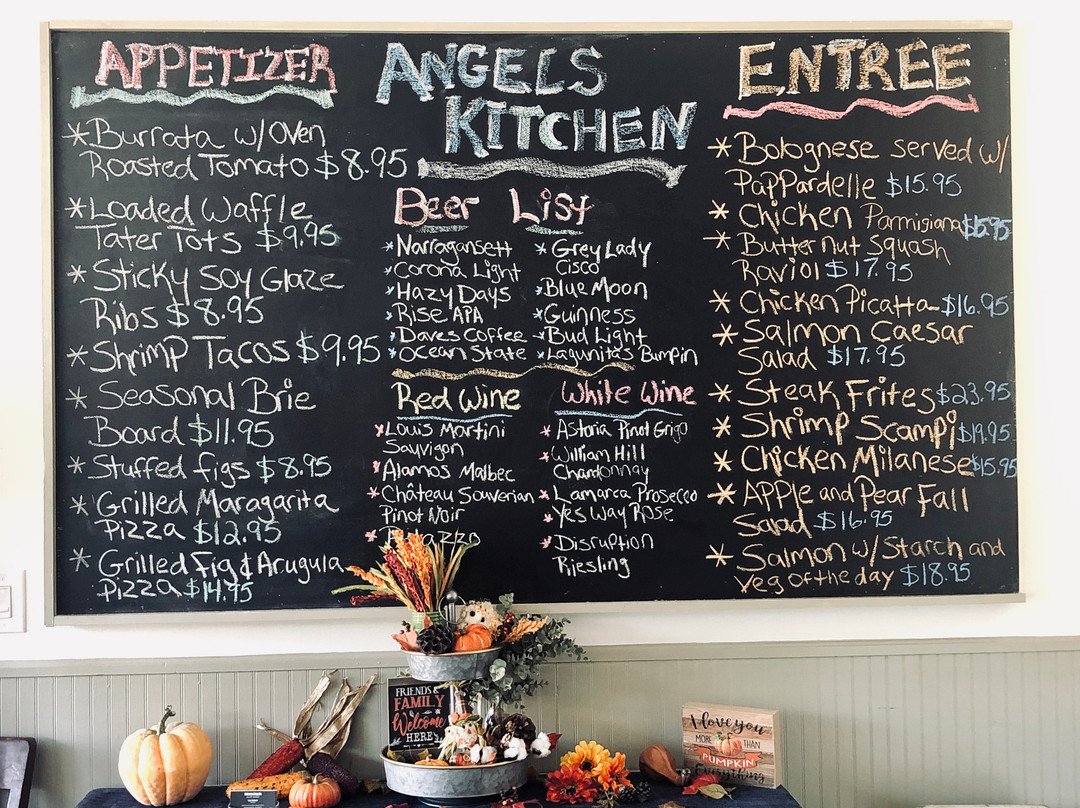 APPETIZER
* Burrata w/ Oven
Roasted Tomato $8.95
* Loaded Waffle
Tater Tots $9.95
* Sticky Soy Glaze
Ribs $8.95
* Shrimp Tacos $9.95
* Seasonal Brie
Board $11.95
* Stuffed figs $8.95
* Grilled Maragarita
Pizza $12.95
* Grilled Fig & Arugula
Pizza $14.95
ANGELS
KITCHEN
Beer List
* Narragansett
* Corona Light
* Hazy Days
* Rise APA
* Daves Coffee
* Ocean State
* Grey Lady
Cisco
* Blue Moon
* Guinness
* Bud Light
* Lagunitas Bumpin
Red Wine
* Louis Martini
Sauvigon
* Alamos Malbec
* Château Souverian
Pinot Noir
White Wine
* Astoria Pinot Grigo
* William Hill
Chardonnay
* Lamarca Prosecco
* Yes Way Rose
* Disruption
Riesling
ENTREE
* Bolognese served w/
PapPardelle $15.95
* Chicken Parmigiana $15.95
* Butternut Squash
Raviol $17.95
* Chicken Picatta $16.95
* Salmon Caesar
Salad $17.95
* Steak Frites $23.95
* Shrimp Scampi $19.95
* Chicken Milanese $15.95
* Apple and Pear Fall
Salad $16.95
* Salmon w/ Starch and
veg of the day $18.95
FRIENDS &
FAMILY
Welcome
HERE
I love you
MORE THAN
PUMPKIN
Everything